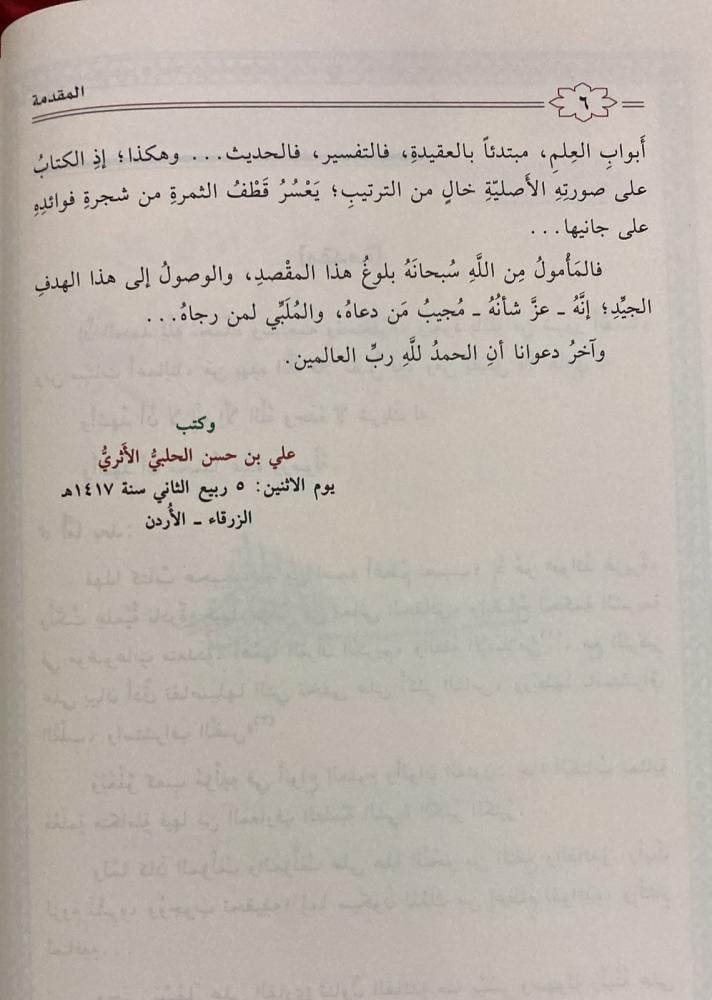 المقدمة
٦
أَبوابِ العِلمِ، مبتدئاً بالعقيدةِ، فالتفسير، فالحديث... وهكذا؛ إذِ الكتابُ
على صورتِهِ الأَصليّةِ خالٍ من الترتيبِ؛ يَعْسُرُ قَطْفُ الثمرةِ من شجرةِ فوائدِهِ
على جانيها...
فالمَأْمولُ مِن اللَّهِ سُبحانَهُ بلوغُ هذا المقْصدِ، والوصولُ إلى هذا الهدفِ
الجيِّدِ؛ إنَّهُ ـ عزَّ شأنُهُ ـ مُجيبُ مَن دعاهُ، والمُلَبِّي لمن رجاهُ...
وآخرُ دعوانا أنِ الحمدُ للَّهِ ربِّ العالمين.
وكتب
علي بن حسن الحلبيُّ الأَثريُّ
يوم الاثنين: ٥ ربيع الثاني سنة ١٤١٧هـ
الزرقاء ـ الأُردن